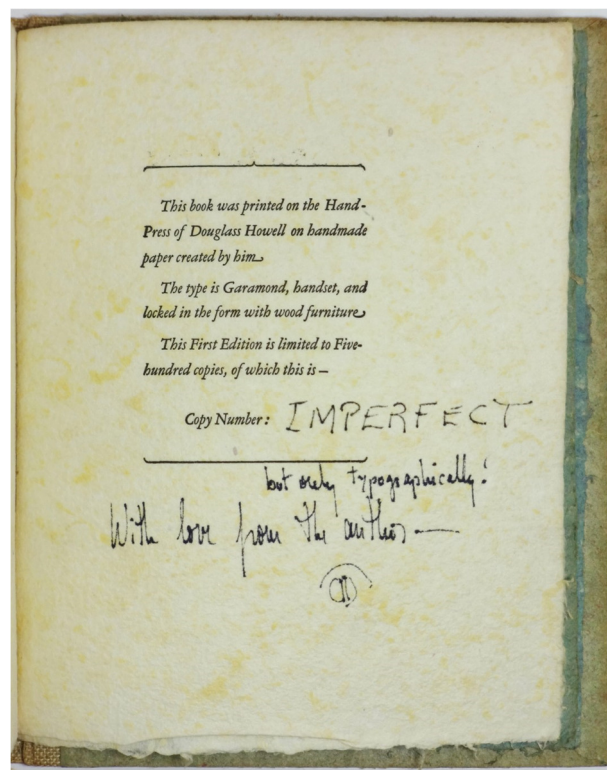 This book was printed on the Hand-
Press of Douglass Howell on handmade
paper created by him.
The type is Garamond, handset, and
locked in the form with wood furniture
This First Edition is limited to Five-
hundred copies, of which this is —
Copy Number: IMPERFECT
but only typographically!
With love from the author —